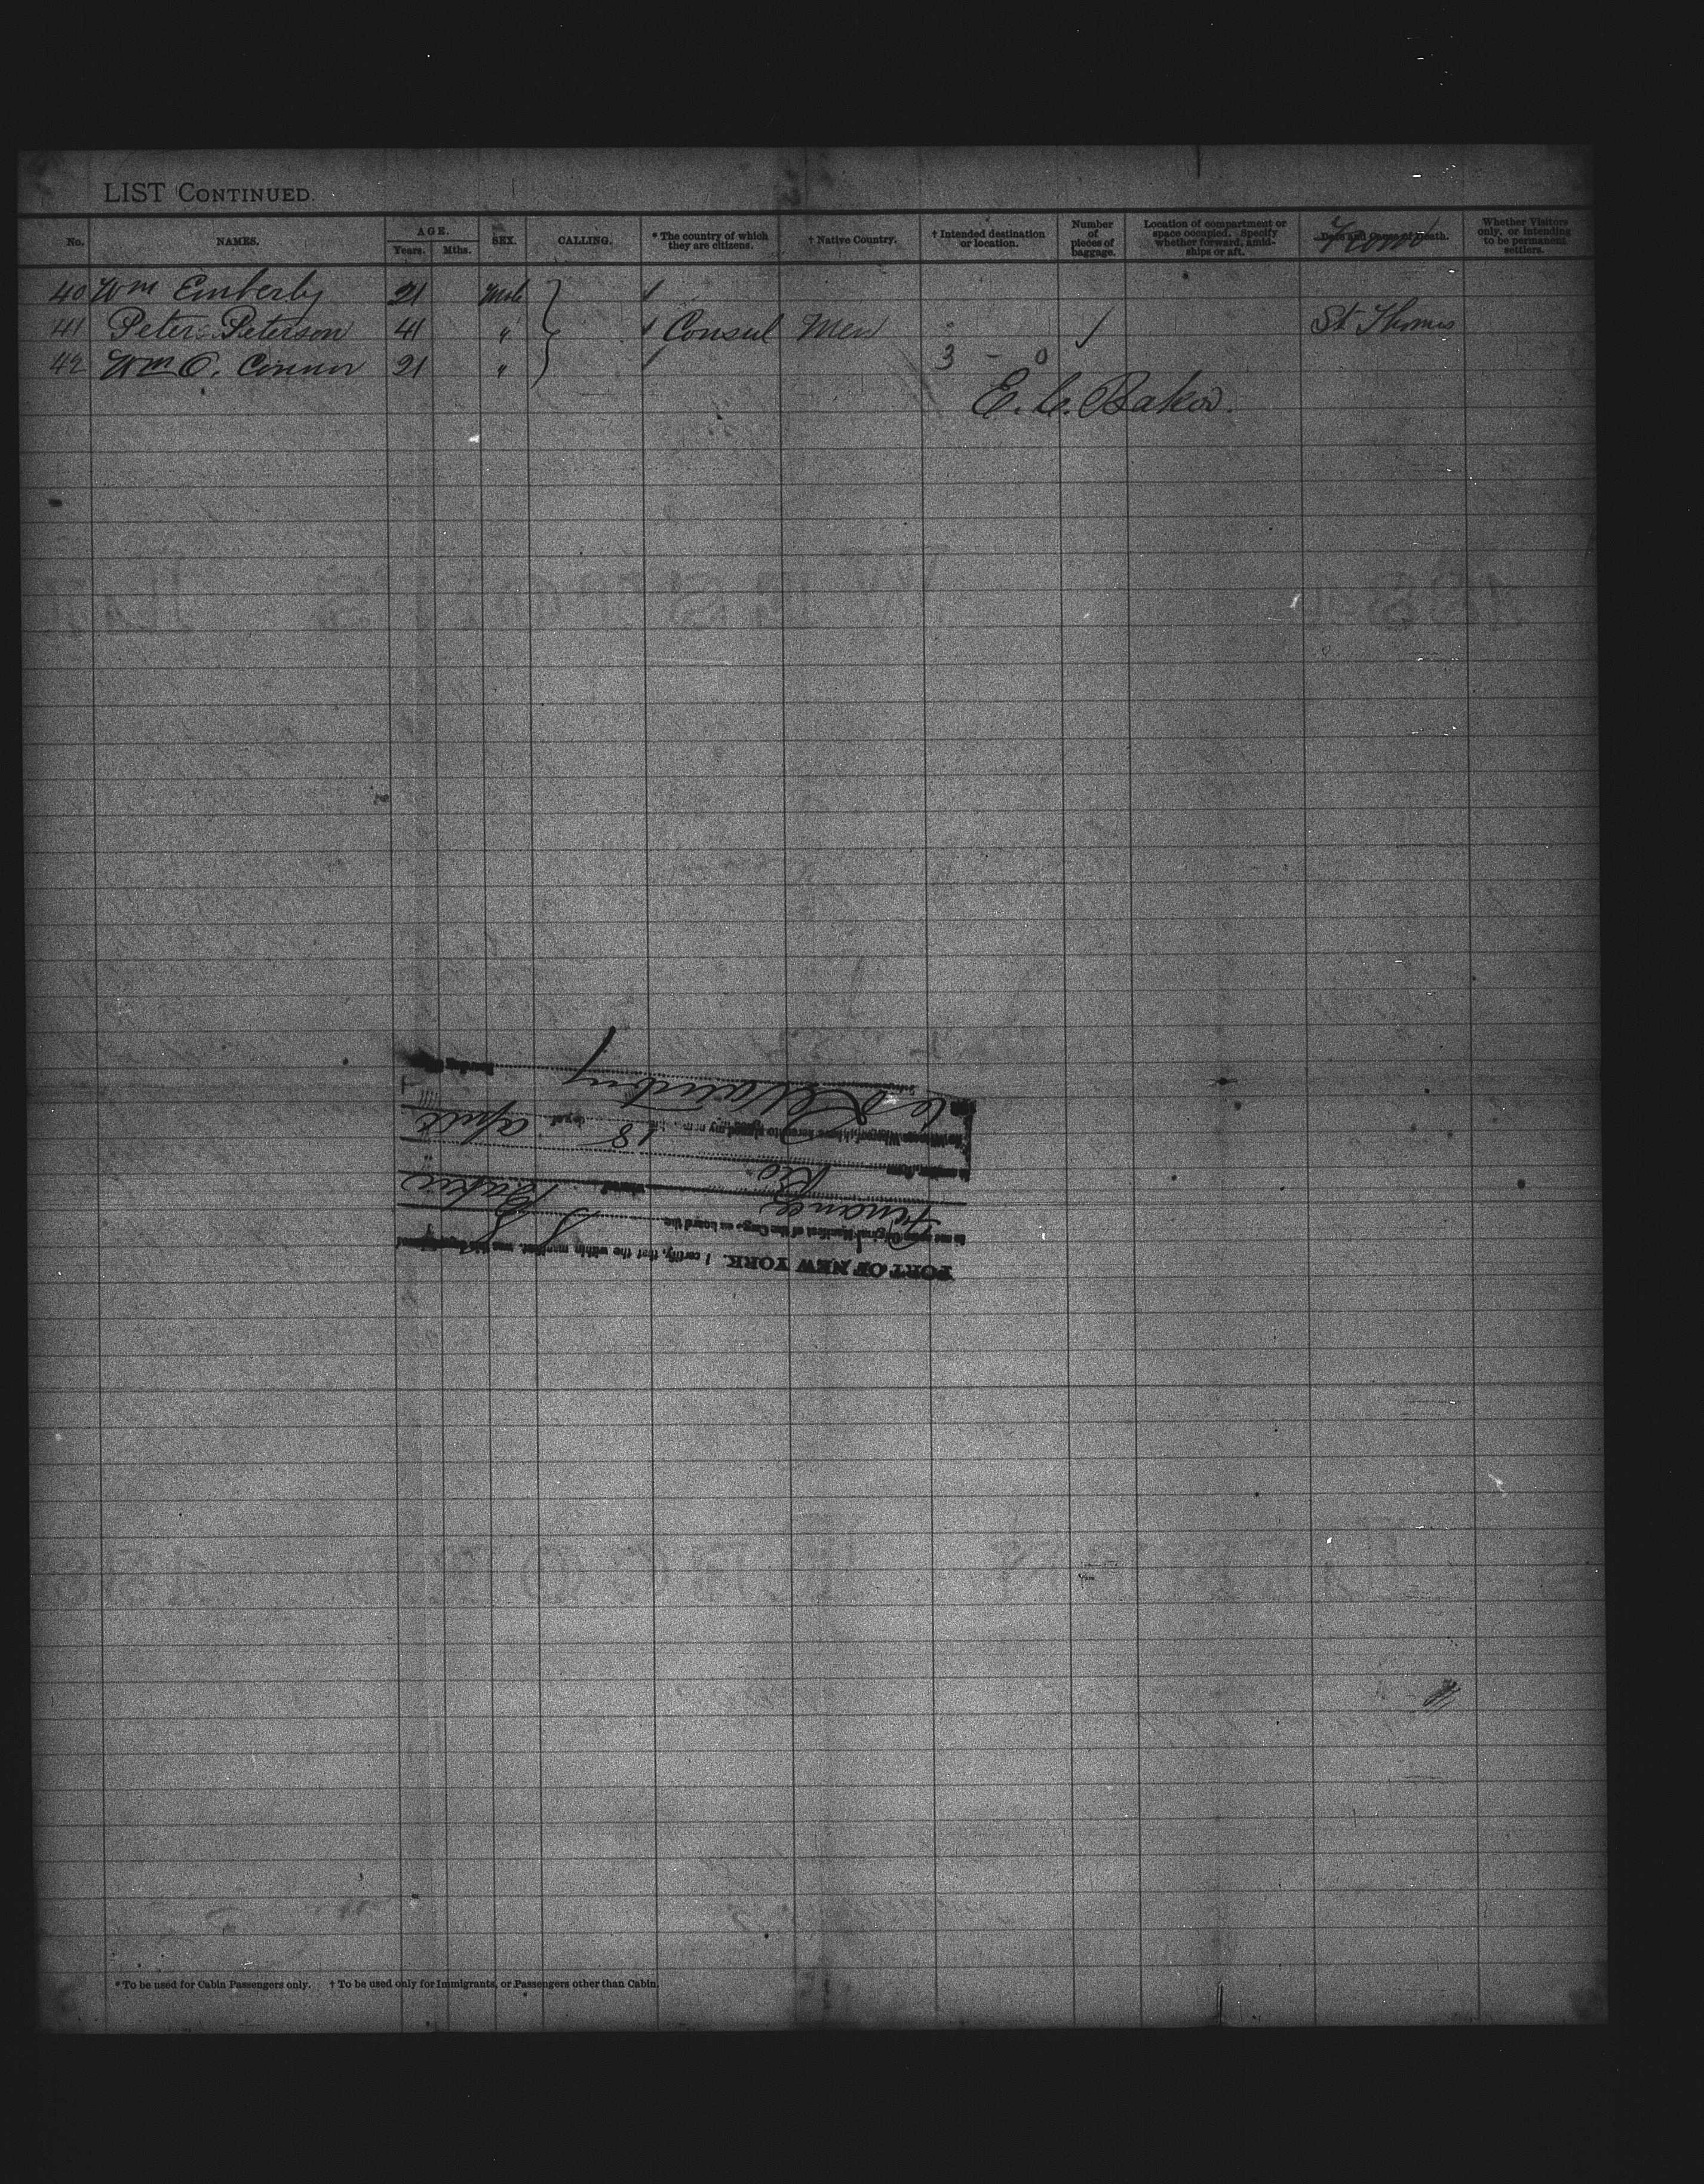 LIST CONTINUED.
No. NAMES. AGE. Years. Mths. SEX. CALLING. * The country of which they are citizens. † Native Country. † Intended destination or location. Number of pieces of baggage. Location of compartment or space occupied. Specify whether forward, amidships or aft. Date and Cause of Death. From Whether Visitors only, or intending to be permanent settlers.
40 Wm Emberly 21 Male
41 Peter Peterson 41 " Consul Men St Thomas
42 Wm O. Connor 21 "
3 - 0
E. C. Baker.
PORT OF NEW YORK. I certify, that the within manifest, was this day
to me as an Original Manifest of the Cargo on board the
Finance Baker
Rio
In Witness Whereof, I have hereunto my 18 day of April
* To be used for Cabin Passengers only. † To be used only for Immigrants, or Passengers other than Cabin.